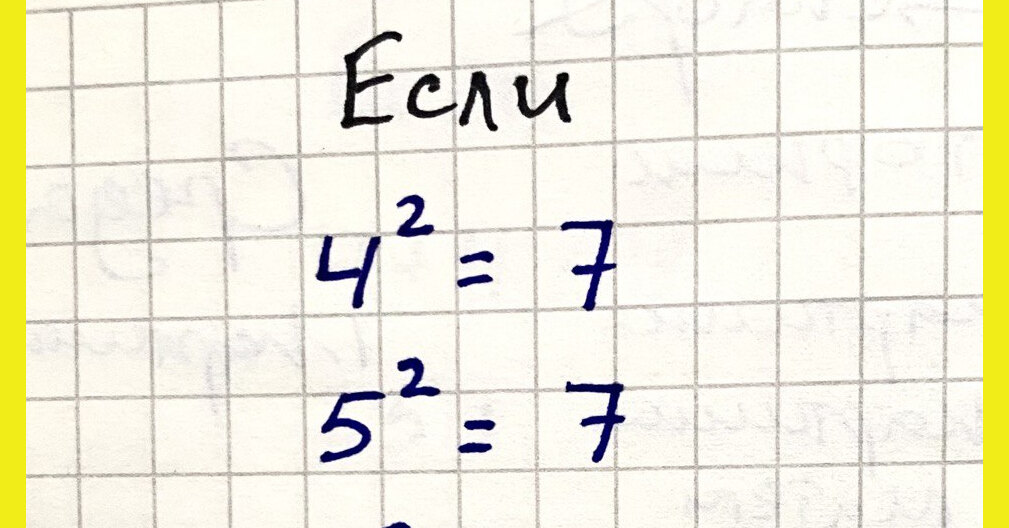 Если
4² = 7
5² = 7